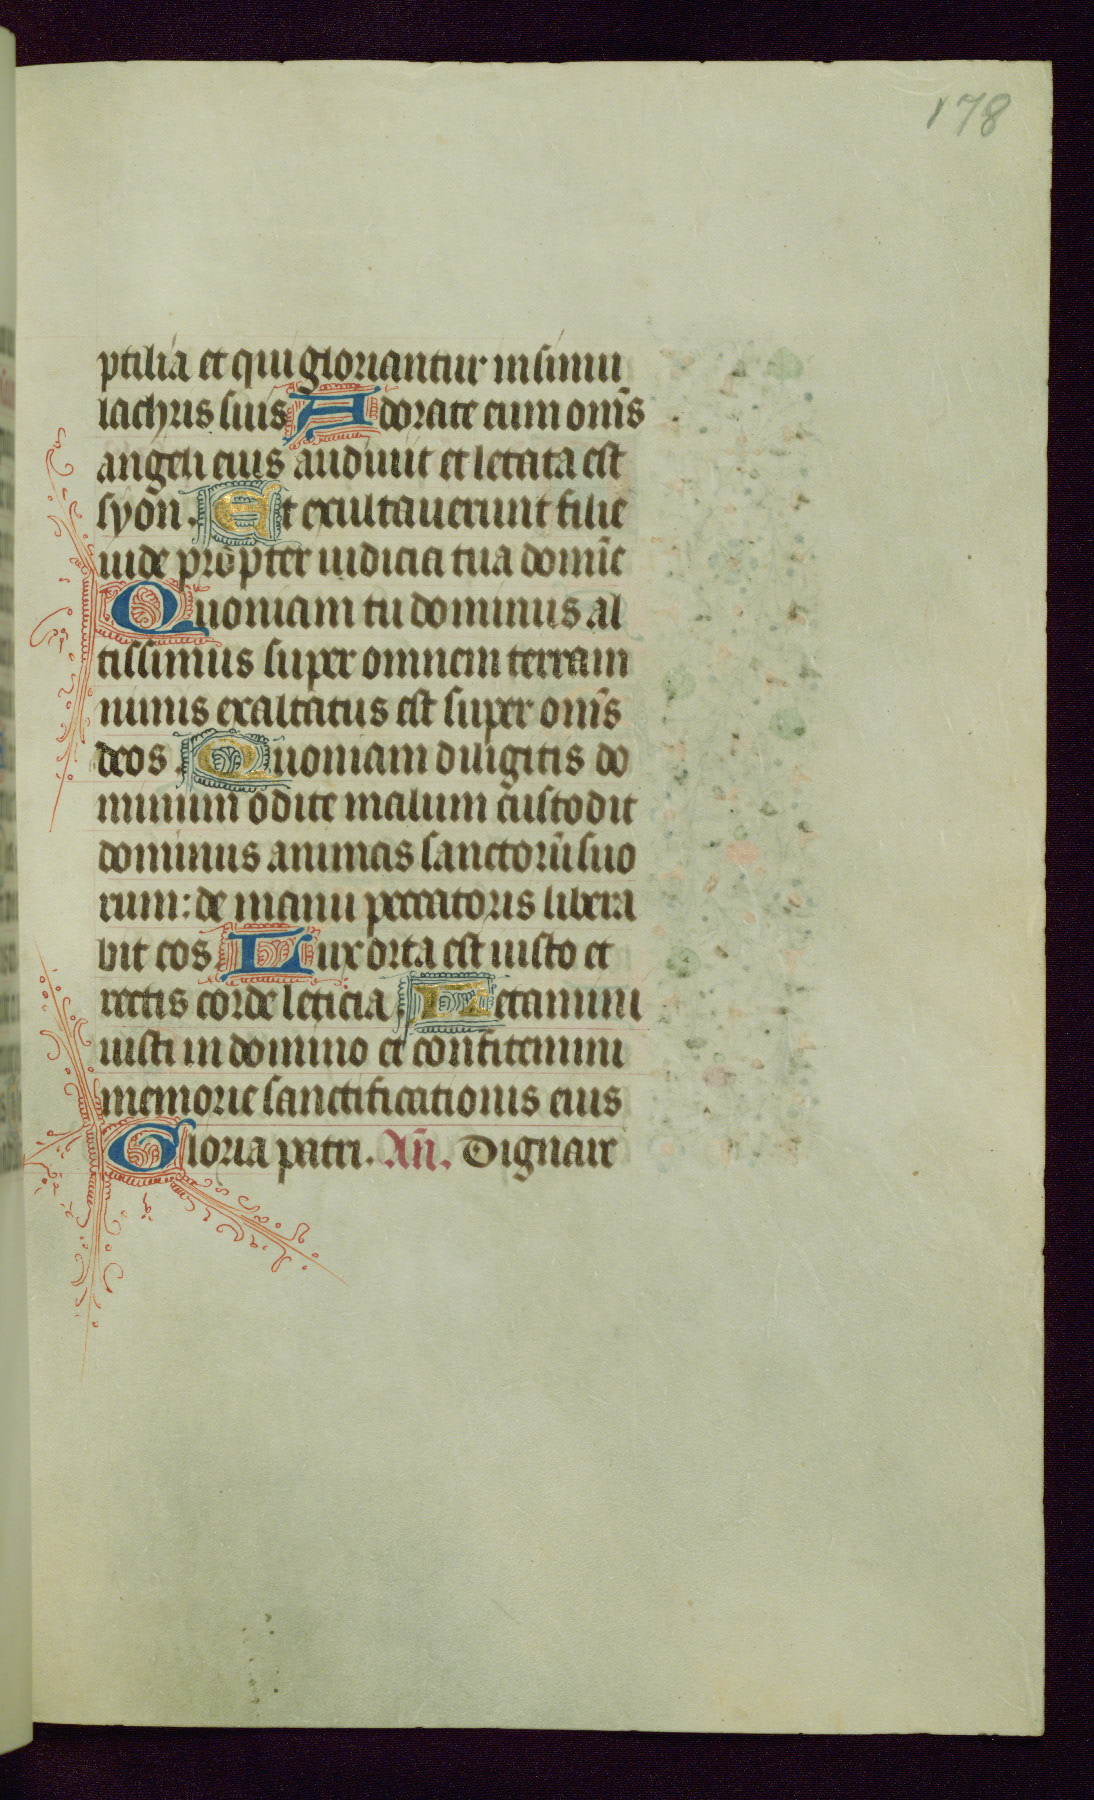 178
ptilia et qui gloriantur in simu
lachris suis Adorate eum om̄s
angeli eius audiuit et letata est
syon. Et exultauerunt filie
iude propter iudicia tua domīe
Quoniam tu dominus al
tissimus super omnem terram
nimis exaltatus est super om̄s
deos. Quoniam diligitis do
minum odite malum custodit
dominus animas sanctorū suo
rum: de manu peccatoris libera
bit eos. Lux orta est iusto et
rectis corde leticia. Letamini
iusti in domino et confitemini
memorie sanctificationis eius
Gloria patri. Añ. Dignare